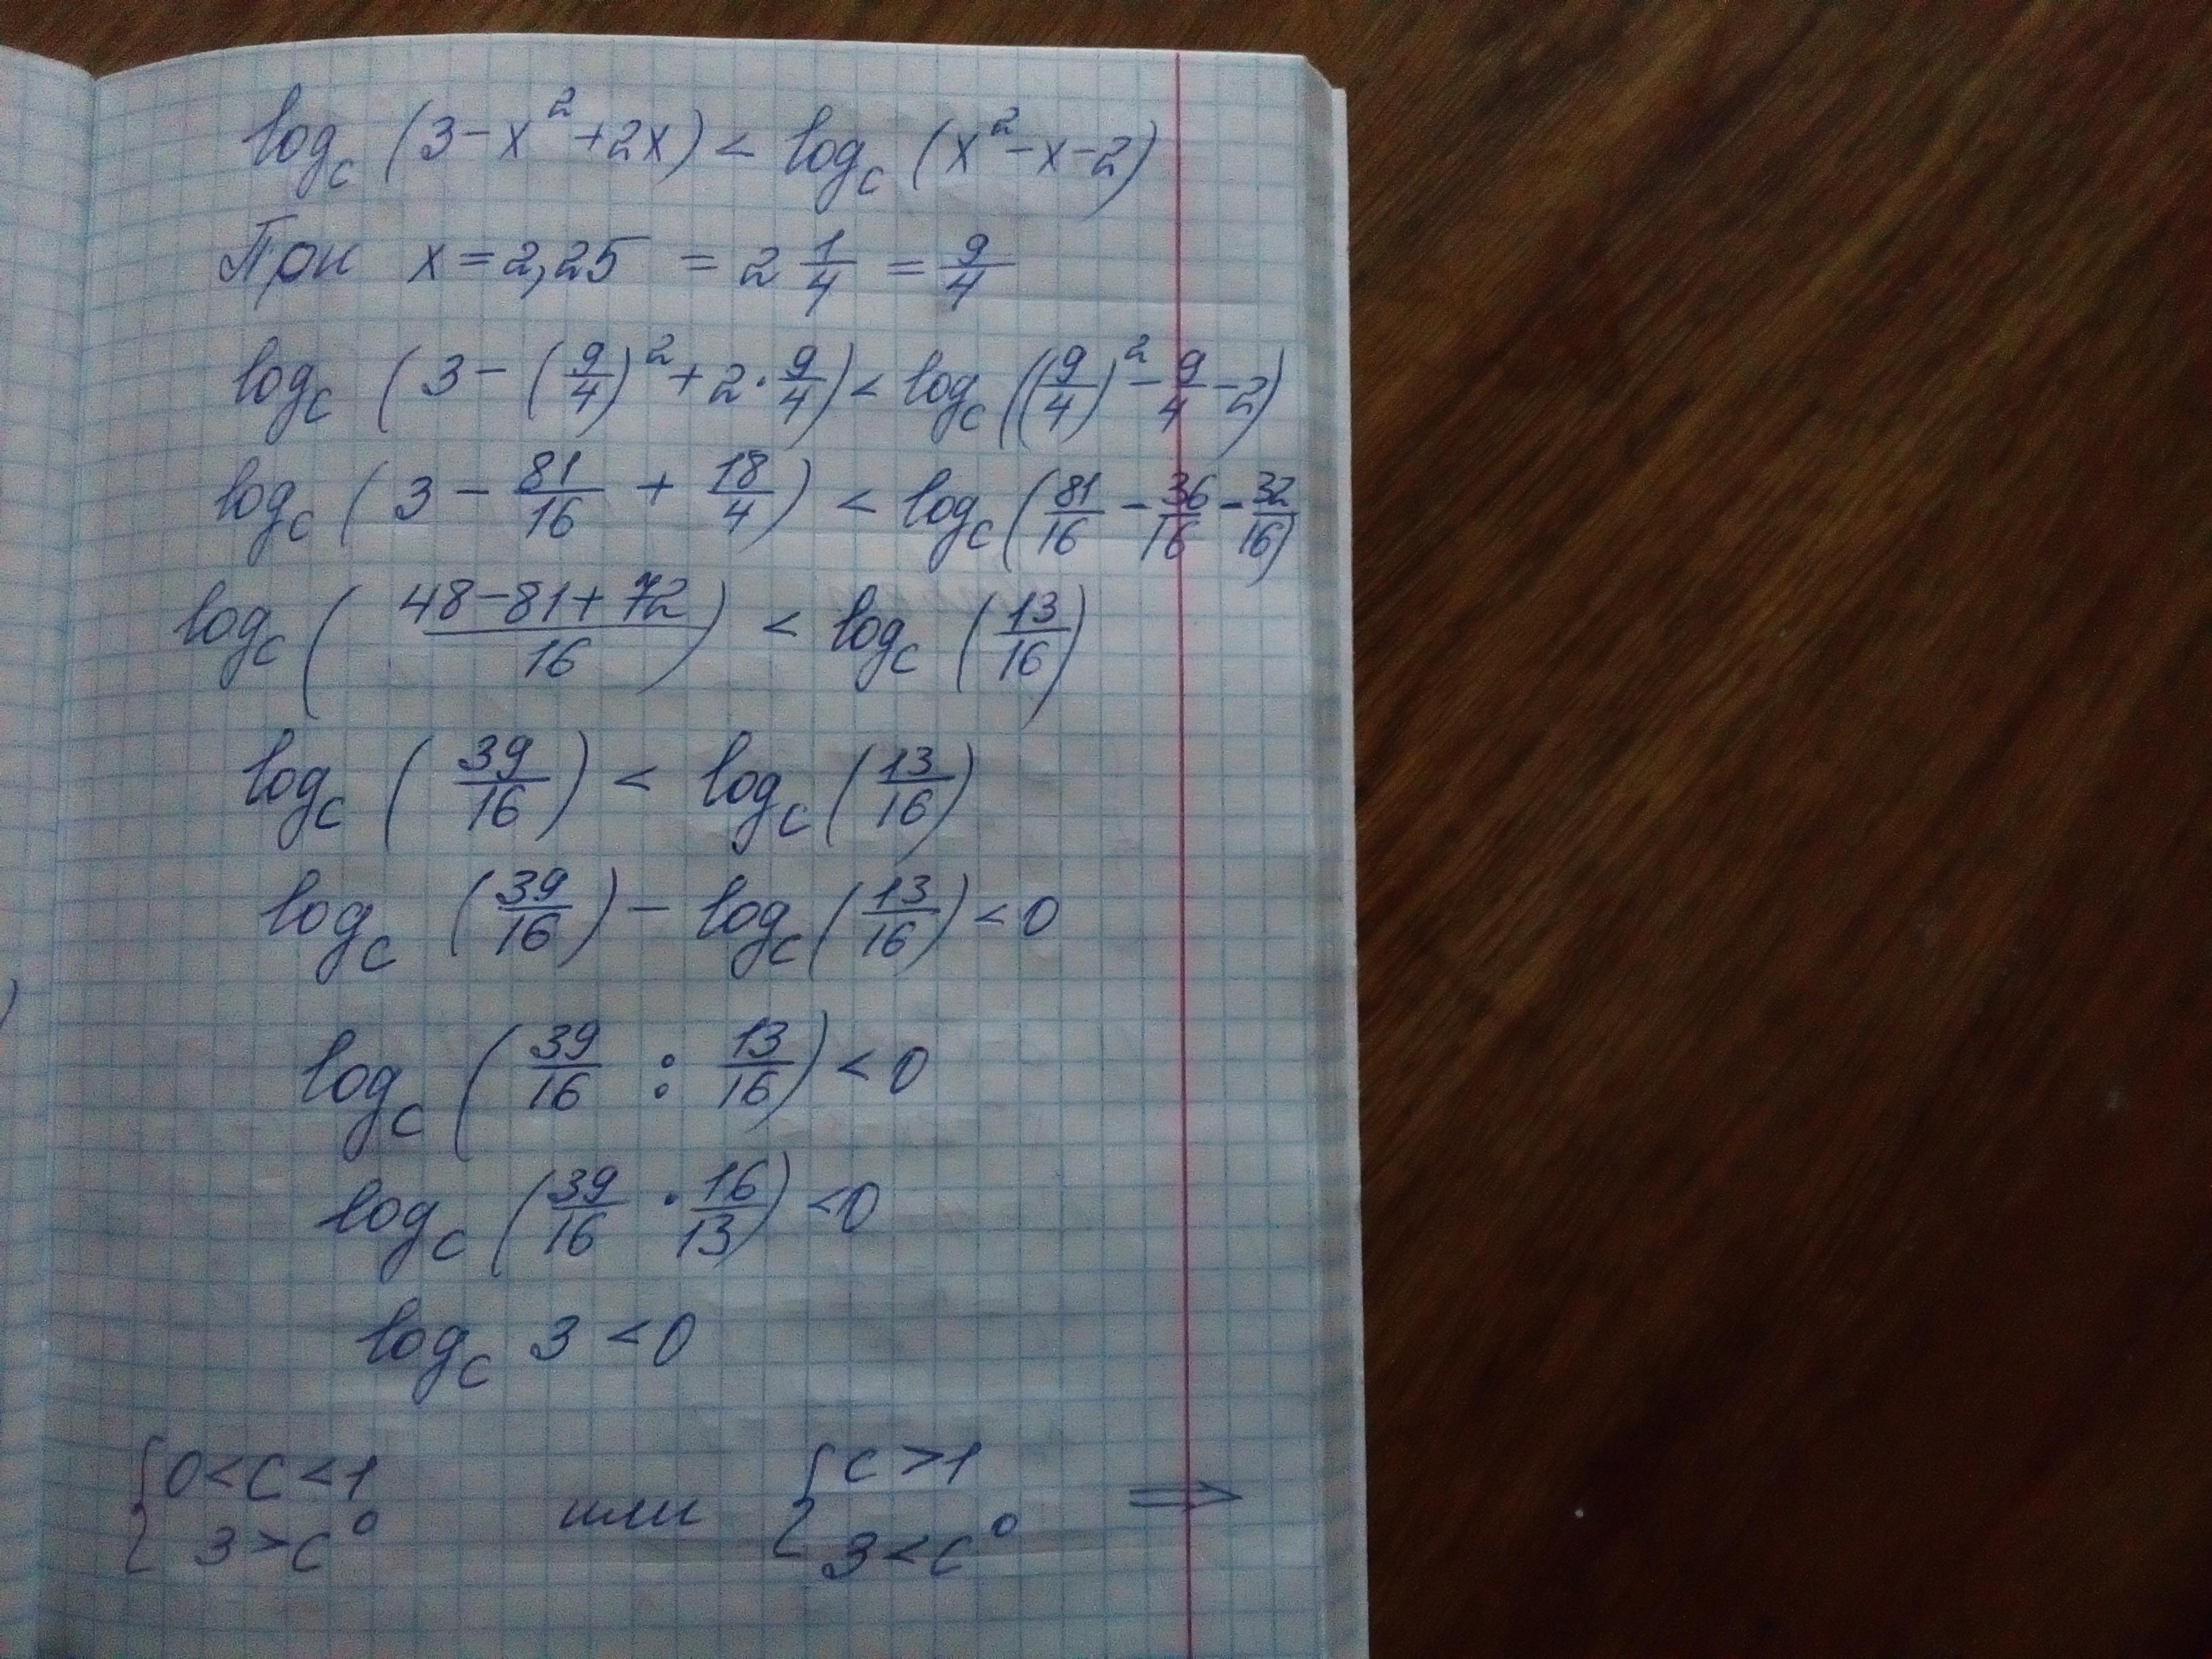 log_c (3 - x² + 2x) < log_c (x² - x - 2)
При x = 2,25 = 2 1/4 = 9/4
log_c (3 - (9/4)² + 2 · 9/4) < log_c ((9/4)² - 9/4 - 2)
log_c (3 - 81/16 + 18/4) < log_c (81/16 - 36/16 - 32/16)
log_c ((48 - 81 + 72)/16) < log_c (13/16)
log_c (39/16) < log_c (13/16)
log_c (39/16) - log_c (13/16) < 0
log_c (39/16 : 13/16) < 0
log_c (39/16 · 16/13) < 0
log_c 3 < 0
{ 0 < c < 1 или { c > 1 ⇒
3 > c⁰ 3 < c⁰